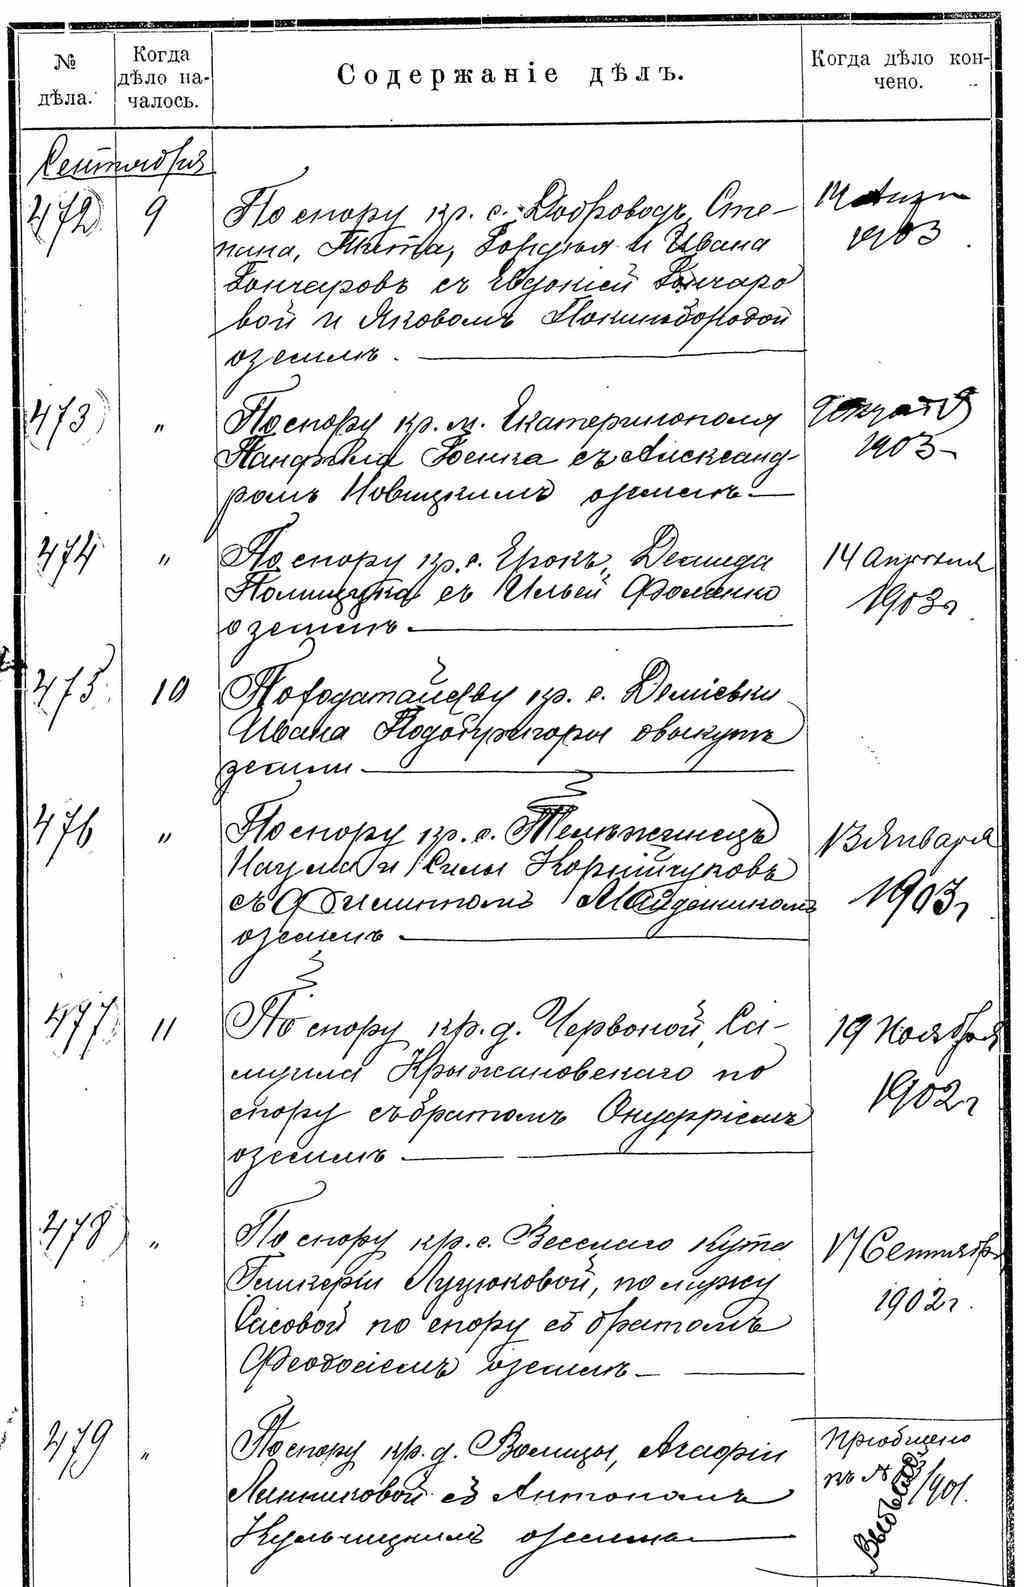 № дѣла.
Когда дѣло на-
чалось.
Содержаніе дѣлъ.
Когда дѣло кон-
чено.
Сентября
472 9
По спору кр. с. Доброводъ, Сте-
пана, Никиты, и Ивана
Гончаровъ съ Евдокіей Гончаро
вой и Яковомъ
о землѣ.
1903
473 „
По спору кр. м. Екатеринополя
Панфила съ Александ-
ромъ Новицкимъ о землѣ
1903
474 „
По спору кр. с. Ерокъ, Демида
Полищука съ Ильей Фоменко
о землѣ.
14 Апрѣля
1903 г
475 10
По ходатайству кр. с. Деміевки
Ивана Подопригоры о выкупѣ
земли
476 „
По спору кр. с.
Наума и Силы Корнійчуковъ
съ Филиппомъ
о землѣ
13 Января
1903 г
477 11
По спору кр. д. Червоной, Са-
муила Крыжановскаго по
спору съ братомъ Онуфріемъ
о землѣ
19 Ноября
1902 г
478 „
По спору кр. с. Веселаго Кута
Гликеріи Луцюковой, по мужу
по спору съ братомъ
Феодосіемъ о землѣ
17 Сентября
1902 г.
479 „
По спору кр. д. Волицы, Агафіи
съ Антономъ
Кульчицкимъ о землѣ
Пріобщено
къ № 1901.